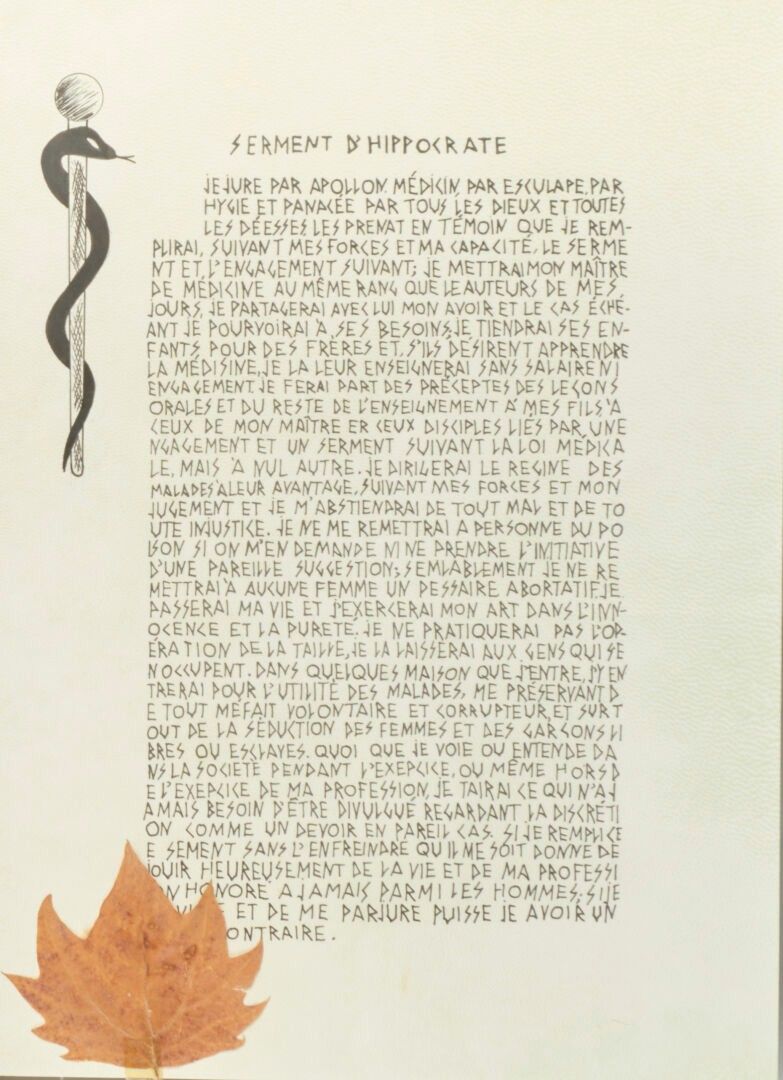 SERMENT D'HIPPOCRATE
JE JURE PAR APOLLON. MÉDICIN, PAR ESCULAPE, PAR
HYGIE ET PANACÉE PAR TOUS LES DIEUX ET TOUTES
LES DÉESSES, LES PRENAT EN TÉMOIN QUE JE REM-
PLIRAI, SUIVANT MES FORCES ET MA CAPACITÉ, LE SERME
NT ET, L'ENGAGEMENT SUIVANT; JE METTRAI MON MAÎTRE
DE MÉDICINE AU MÊME RANG QUE LE AUTEURS DE MES
JOURS, JE PARTAGERAI AVEC LUI MON AVOIR ET LE CAS ÉCHÉ-
ANT JE POURVOIRAI À SES BESOINS, JE TIENDRAI SES EN-
FANTS POUR DES FRÈRES ET, S'ILS DÉSIRENT APPRENDRE
LA MÉDISINE, JE LA LEUR ENSEIGNERAI SANS SALAIRE NI
ENGAGEMENT. JE FERAI PART DES PRÉCEPTES DES LEÇONS
ORALES ET DU RESTE DE L'ENSEIGNEMENT À MES FILS À
CEUX DE MON MAÎTRE ER CEUX DISCIPLES LIÉS PAR UNE
NGAGEMENT ET UN SERMENT SUIVANT LA LOI MÉDICA
LE, MAIS À NUL AUTRE. JE DIRIGERAI LE REGINE DES
MALADES À LEUR AVANTAGE, SUIVANT MES FORCES ET MON
JUGEMENT ET JE M'ABSTIENDRAI DE TOUT MAL ET DE TO
UTE INJUSTICE. JE NE ME REMETTRAI A PERSONNE DU PO
ISON SI ON M'EN DEMANDE NI NE PRENDRE L'INITIATIVE
D'UNE PAREILLE SUGGESTION; SEMLABLEMENT JE NE RE
METTRAI À AUCUNE FEMME UN PESSAIRE ABORTATIF. JE
PASSERAI MA VIE ET J'EXERCERAI MON ART DANS L'INN-
OCENCE ET LA PURETÉ. JE NE PRATIQUERAI PAS L'OP-
ÉRATION DE LA TAILLE, JE LA LAISSERAI AUX GENS QUI SE
N OCCUPENT. DANS QUELQUES MAISON QUE J'ENTRE, J'Y EN
TRERAI POUR L'UTILITÉ DES MALADES, ME PRÉSERVANT D
E TOUT MEFAIT VOLONTAIRE ET CORRUPTEUR, ET SURT
OUT DE LA SÉDUCTION DES FEMMES ET DES GARSONS LI
BRES OU ESCLAVES. QUOI QUE JE VOIE OU ENTENDE DA
NS LA SOCIETÉ PENDANT L'EXEPCICE, OU MÊME HORS D
E L'EXEPCICE DE MA PROFESSION, JE TAIRAI CE QUI N'A J
AMAIS BESOIN D'ÊTRE DIVULGUÉ REGARDANT LA DISCRÉTI
ON COMME UN DEVOIR EN PAREIL CAS. SI JE REMPLI CE
E SEMENT SANS L'ENFREINDRE QU'IL ME SOIT DONNE DE
JOUIR HEUREUSEMENT DE LA VIE ET DE MA PROFESSI
ON HONORÉ A JAMAIS PARMI LES HOMMES; SI JE
ET DE ME PARJURE PUISSE JE AVOIR UN
ONTRAIRE.